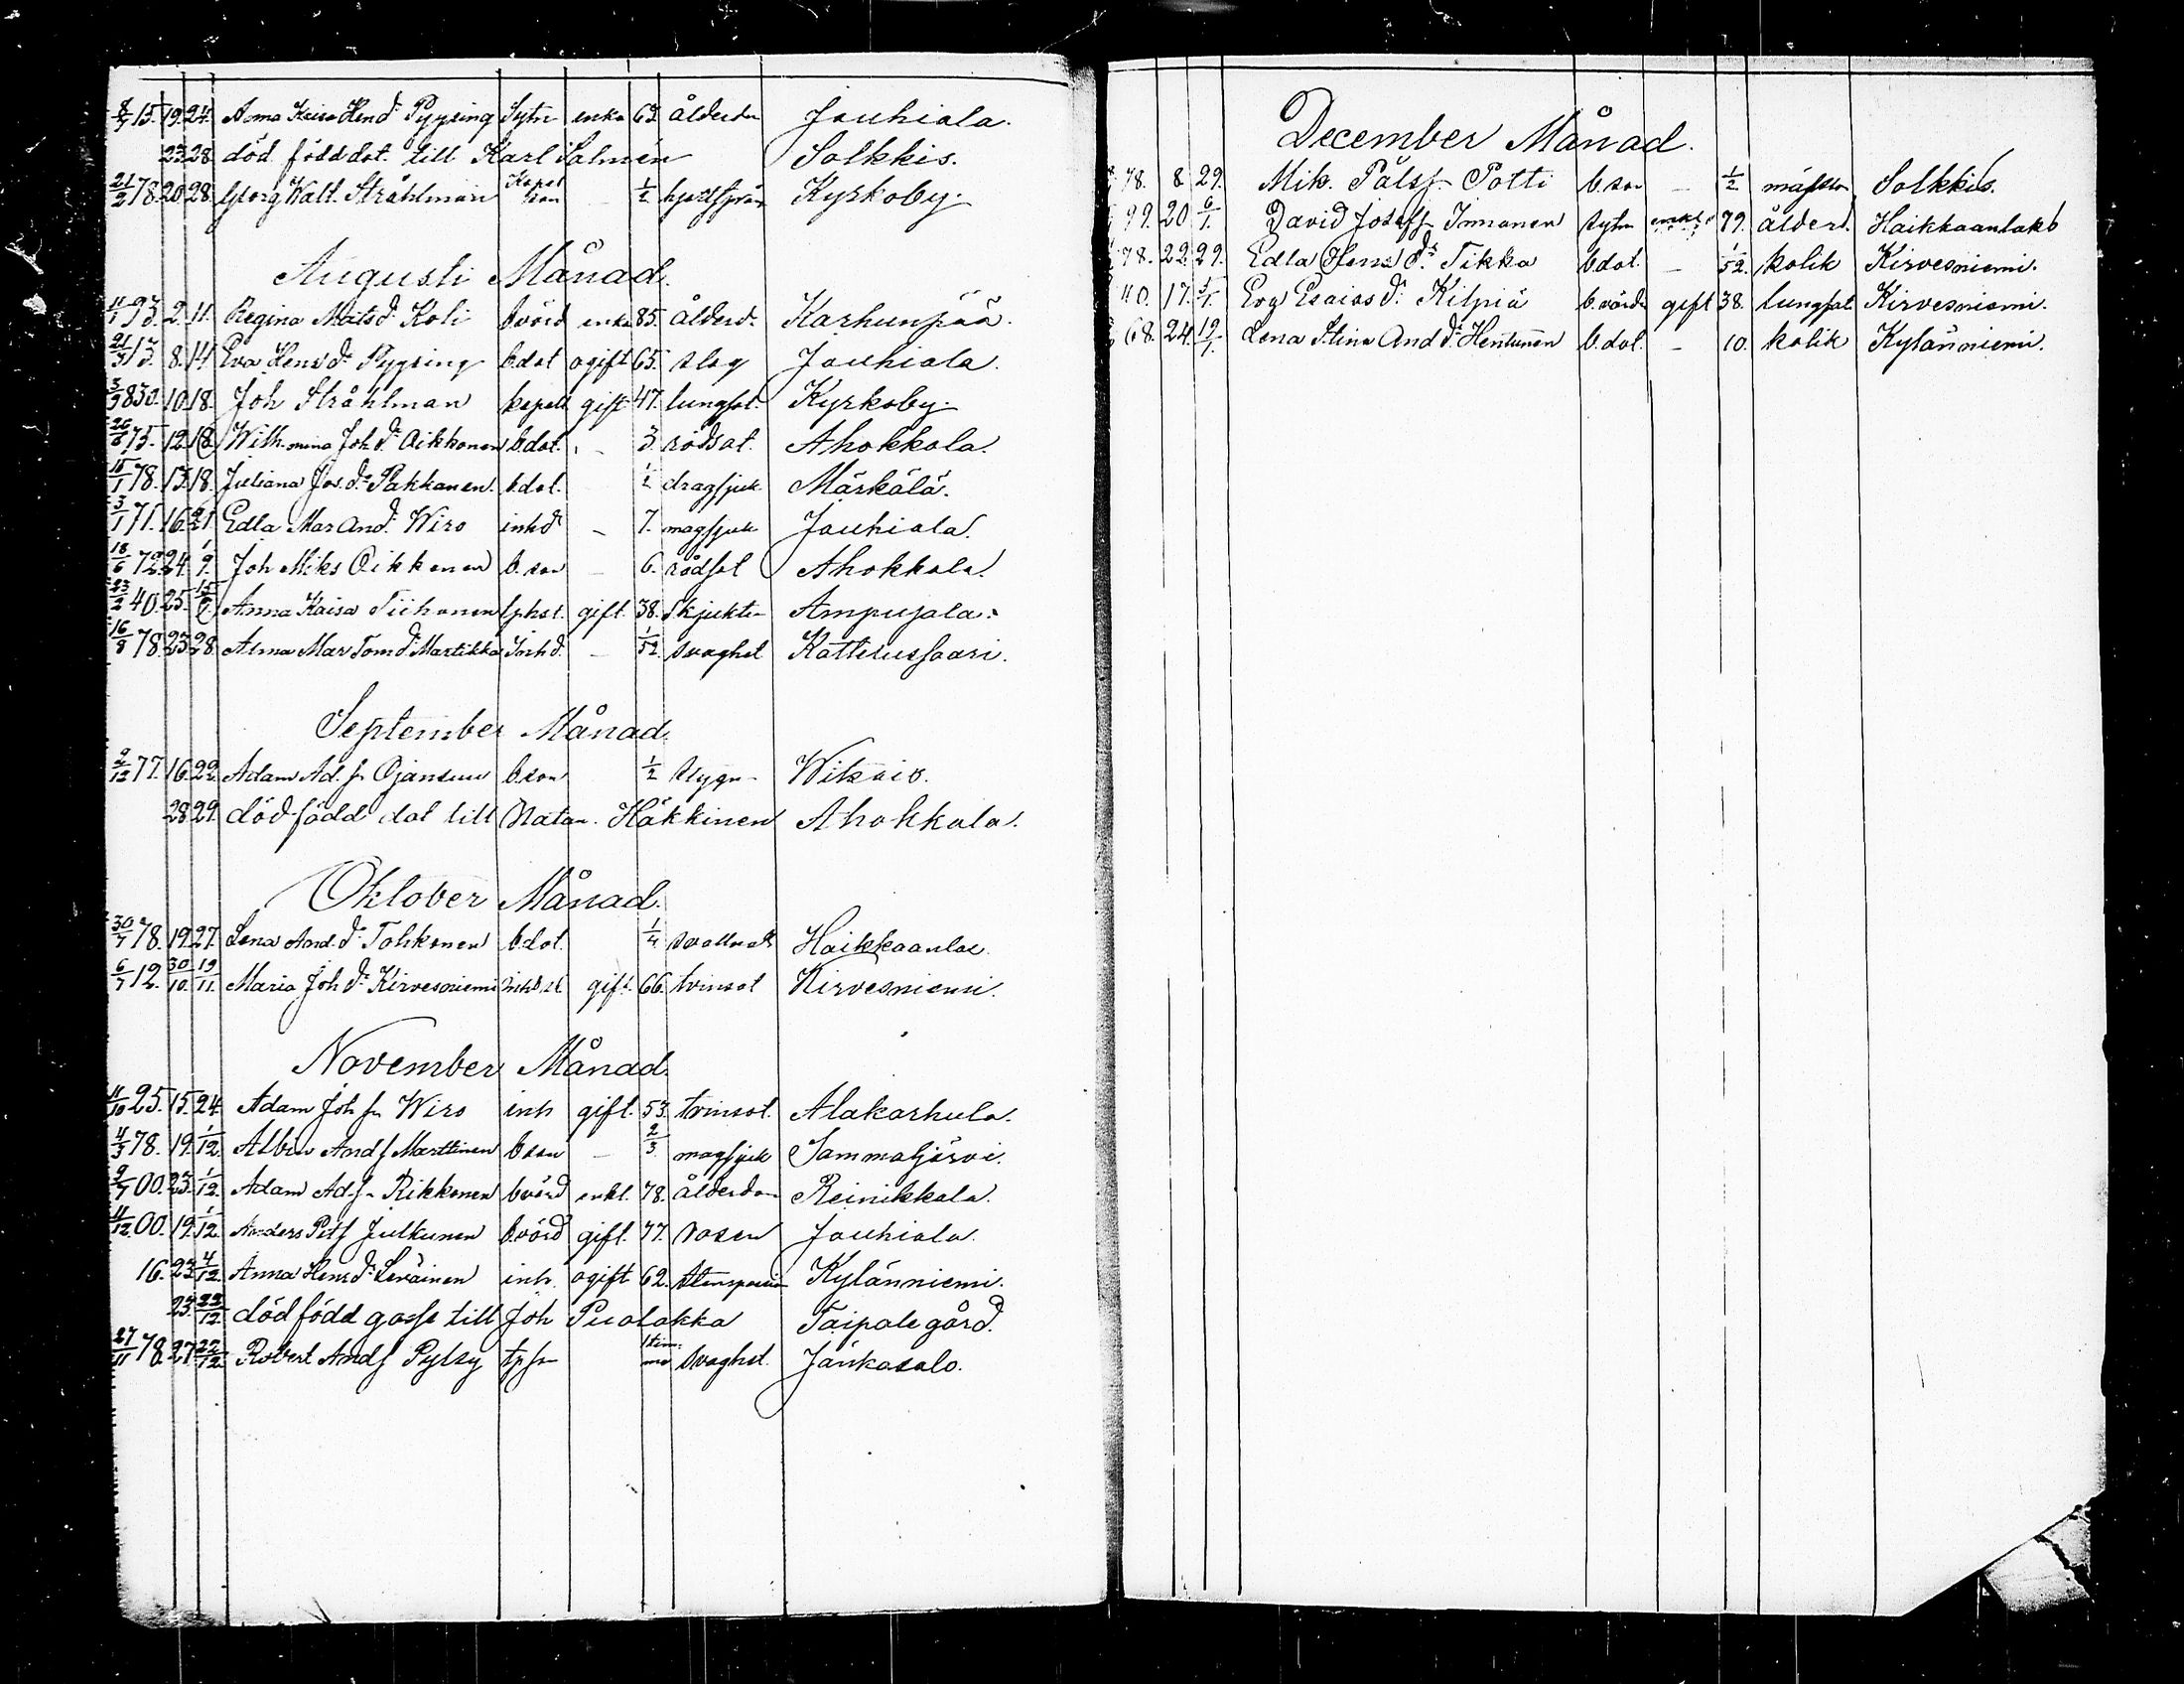 8/7 15. 19. 24. Anna Kaisa Hend:r Pyysing Sytn enka 63 ålderdn Jouhiala.
23. 28. död född dot. till Karl Salmén Solkkis.
21/2 78. 20. 28. Georg Walt. Stråhlman Kapel son ½ Kyrkoby.
Augusti Månad.
11/1 93. 2. 11. Regina Matsd. Koli b.värd enka 85. ålderd. Karhunpää.
21/3 13. 8. 14. Eva Hensd:r Pyysing b.dot ogift 65. slag Jouhiala.
3/3 830. 10. 18. Joh Stråhlman kapell gift 47. lungsot. Kyrkoby.
26/8 75. 12. 18. Wilh.mina Joh d:r Oikkonen b.dot. - 3. rödsot. Ahokkala.
15/1 78. 13. 18. Juliana Jos.d:r Pakkanen. b.dot. ½ dragsjuk Märkälä.
3/1 71. 16. 21. Edla Mar And:r Wiro inhd - 7. magsjuk Jouhiala.
18/6 72. 24. 1/9. Joh Miks Oikkonen b.son - 6. rödsot Ahokkala.
23/2 40. 25. 15/9. Anna Kaisa Tiihonen gift. 38. Ampujala.
16/8 78. 23. 28. Alma Mar Tom d:r Martikka Inh d. - 1/52. svaghet Kattelussaari.
September Månad.
9/12 77. 16. 22. Adam Ad. sn Ojansuu b.son ½ Wikaio.
28. 29. död född dot till Natan. Häkkinen Ahokkala.
Oktober Månad.
30/7 78. 19. 27. Lena And. d:r Tohkonen b.dot. ¼ Haikkaanlax.
6/7 12. 30/10. 19/11. Maria Joh d:r Kirvesniemi gift. 66. tvinsot Kirvesniemi.
November Månad.
11/10 25. 15. 24. Adam Joh sn Wiro inh gift. 53. tvinsot. Alakarhula.
4/3 78. 19. 1/12. Albin And s Marttinen b.son - 2/3. magsjuk Sammaljärvi.
9/7 00. 23. 1/12. Adam Ad.sn Rikkonen b.värd enkl. 78. ålderdom Reinikkala.
11/12. 00. 19. 1/12. Anders Pet s Julkunen b.värd gift. 77. rosen Jouhiala.
16. 23. 4/12. Anna Hens d:r Leväinen inh. ogift 62. Kylänniemi.
23. 22/12. död född gosse till Joh Puolakka Taipale gård.
27/11 78. 27. 22/12. Robert And s Pylsy tpsn 1 timme svaghet. Jänkäsalo.
December Månad.
78. 8. 29. Mik. Pålss. Potti b.son - ½ mässln Solkkis.
99. 20. 6/1. David Josefs. Immonen sytn enkl. 79. ålderd. Haikkaanlaks
78. 22. 29. Edla Hens d:r Tikka b.dot. - 1/52. kolik Kirvesniemi.
40. 17. 5/1. Eva Esaias d:r Kilpiä b.värd. gift 38. lungsot Kirvesniemi.
68. 24. 19/1. Lena Stina And d:r Hentunen b.dot. - 10. kolik Kylänniemi.